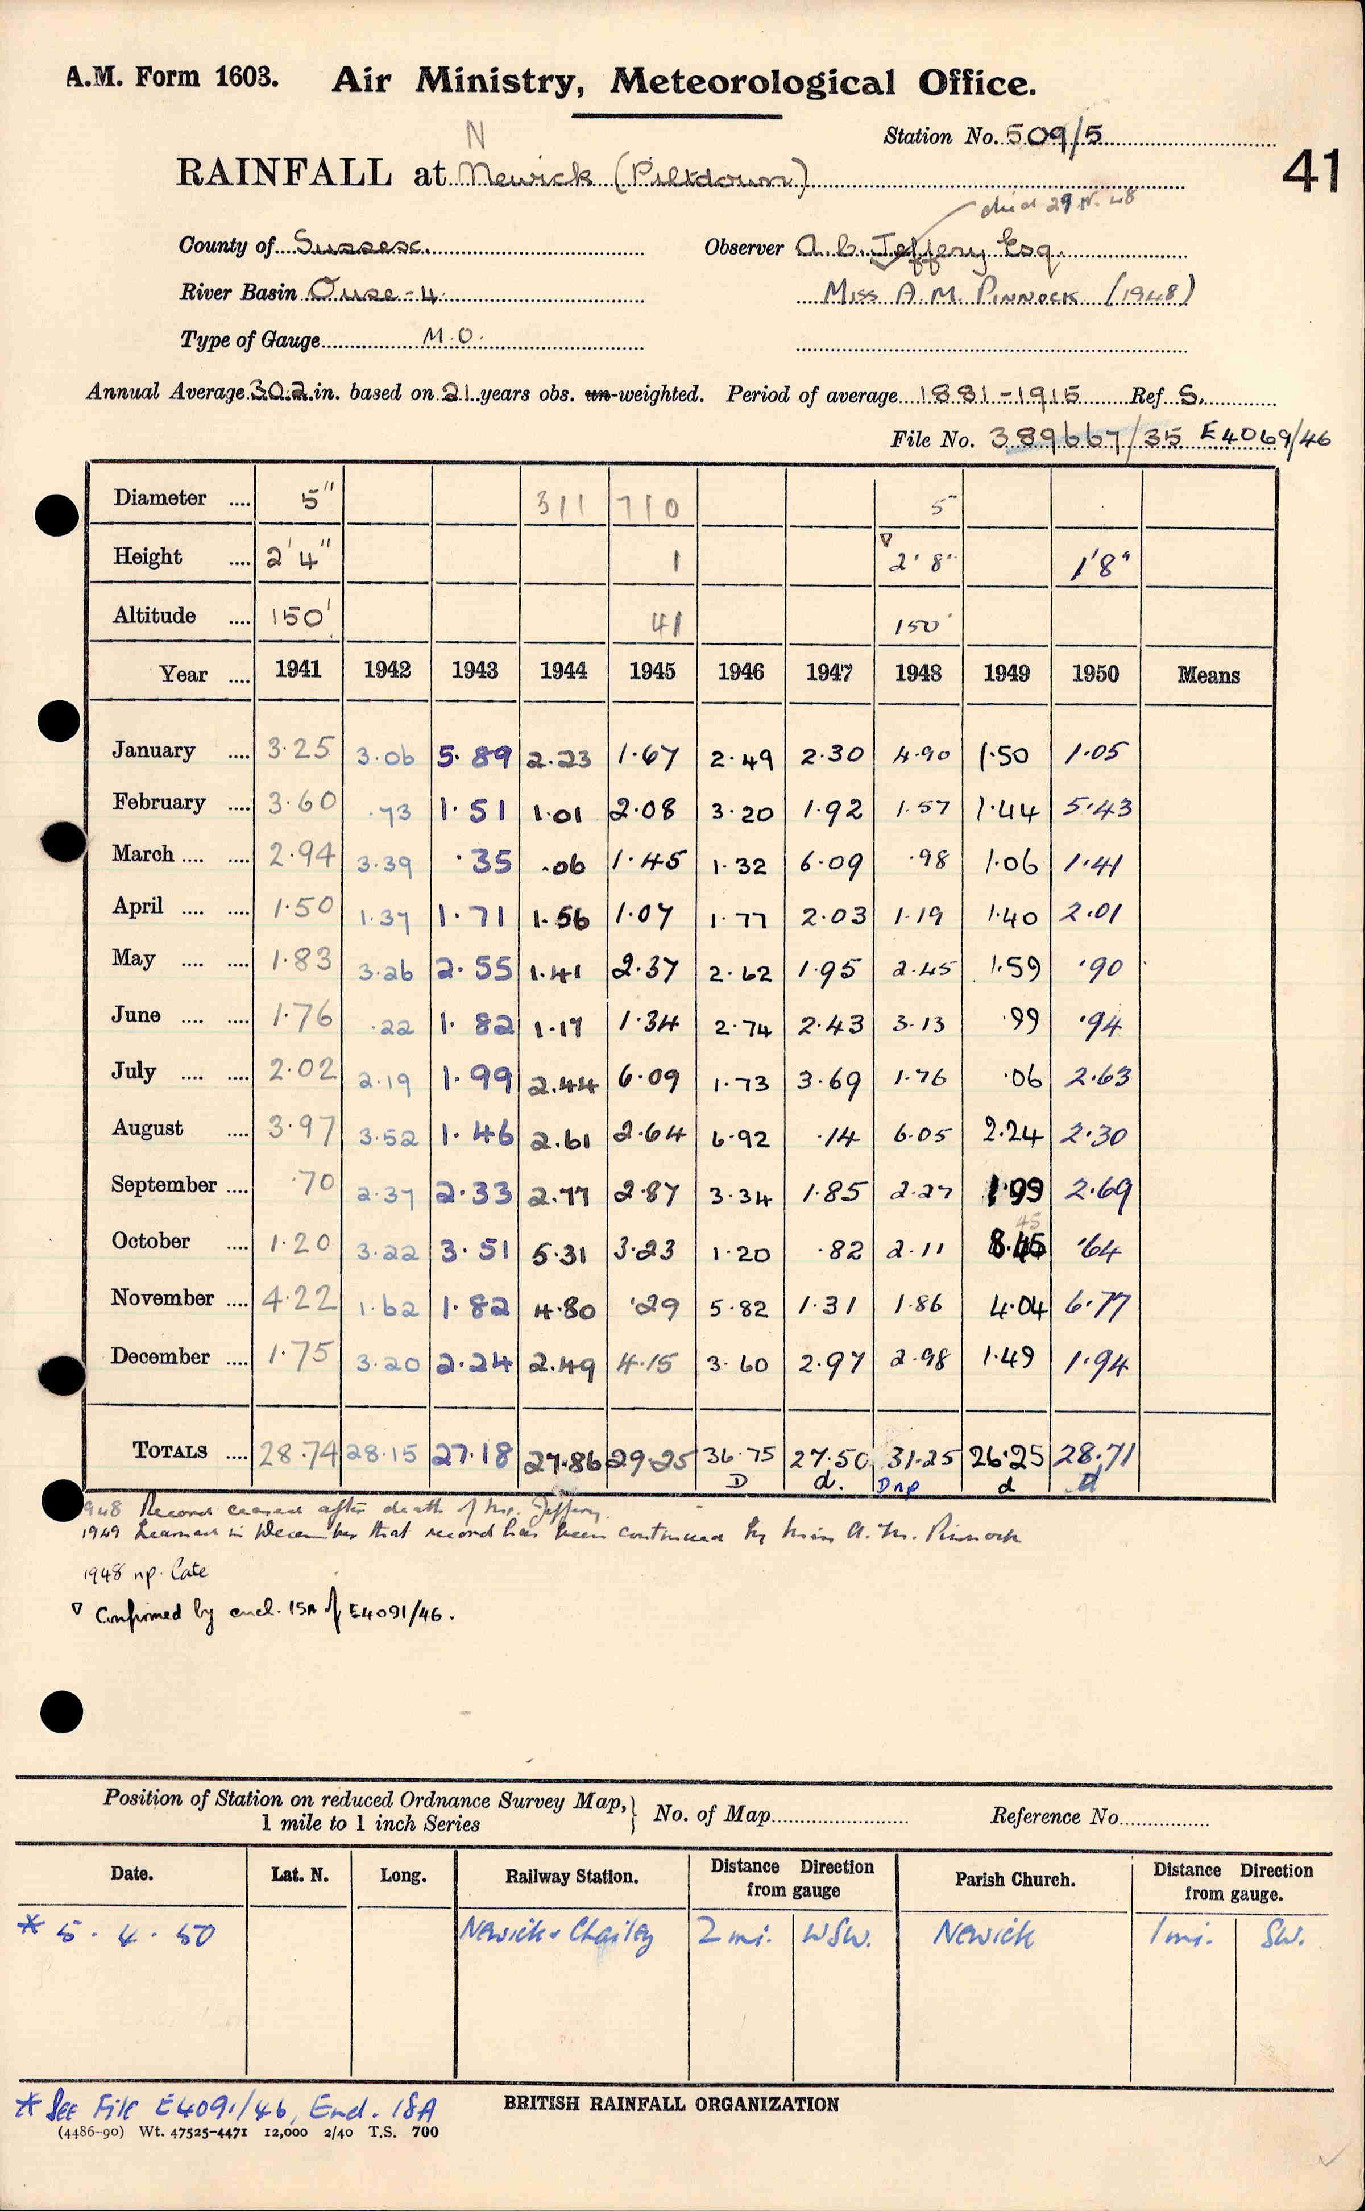 A.M. Form 1603. Air Ministry, Meteorological Office.
Station No. 509/5
N
RAINFALL at Newick (Piltdown)
41
died 29.IV.48
County of Sussex. Observer A. C. Jeffery Esq.
River Basin Ouse-4. Miss A.M. PINNOCK (1948)
Type of Gauge M.O.
Annual Average 30.2 in. based on 21 years obs. un-weighted. Period of average 1881-1915 Ref S.
File No. 389667/35 E4069/46
Diameter .... 5" 311 710 5
Height .... 2'4" 1 ▽ 2'8" 1'8"
Altitude .... 150' 41 150'
Year .... 1941 1942 1943 1944 1945 1946 1947 1948 1949 1950 Means
January .... 3.25 3.06 5.89 2.23 1.67 2.49 2.30 4.90 1.50 1.05
February .... 3.60 .73 1.51 1.01 2.08 3.20 1.92 1.57 1.44 5.43
March .... .... 2.94 3.39 .35 .06 1.45 1.32 6.09 .98 1.06 1.41
April .... .... 1.50 1.37 1.71 1.56 1.07 1.77 2.03 1.19 1.40 2.01
May .... .... 1.83 3.26 2.55 1.41 2.37 2.62 1.95 2.45 1.59 .90
June .... .... 1.76 .22 1.82 1.17 1.34 2.74 2.43 3.13 .99 .94
July .... .... 2.02 2.19 1.99 2.44 6.09 1.73 3.69 1.76 .06 2.63
August .... 3.97 3.52 1.46 2.61 2.64 6.92 .14 6.05 2.24 2.30
September .... .70 2.37 2.33 2.77 2.87 3.34 1.85 2.27 1.99 2.69
45
October .... 1.20 3.22 3.51 5.31 3.23 1.20 .82 2.11 8.45 .64
November .... 4.22 1.62 1.82 4.80 .29 5.82 1.31 1.86 4.04 6.77
December .... 1.75 3.20 2.24 2.49 4.15 3.60 2.97 2.98 1.49 1.94
TOTALS .... 28.74 28.15 27.18 27.86 29.25 36.75 27.50 31.25 26.25 28.71
D d. Dnp d d
1948 Record ceased after death of Mr. Jeffery.
1949 Learned in December that record has been continued by Miss A. M. Pinnock
1948 np. Late
▽ Confirmed by encl. 15A of E4091/46.
Position of Station on reduced Ordnance Survey Map, 1 mile to 1 inch Series } No. of Map Reference No.
Date. Lat. N. Long. Railway Station. Distance Direction from gauge Parish Church. Distance Direction from gauge.
* 5.4.50 Newick & Chailey 2 mi. WSW. Newick 1 mi. SW.
* See File E4091/46, Encl. 15A
BRITISH RAINFALL ORGANIZATION
(4486-90) Wt. 47525-4471 12,000 2/40 T.S. 700